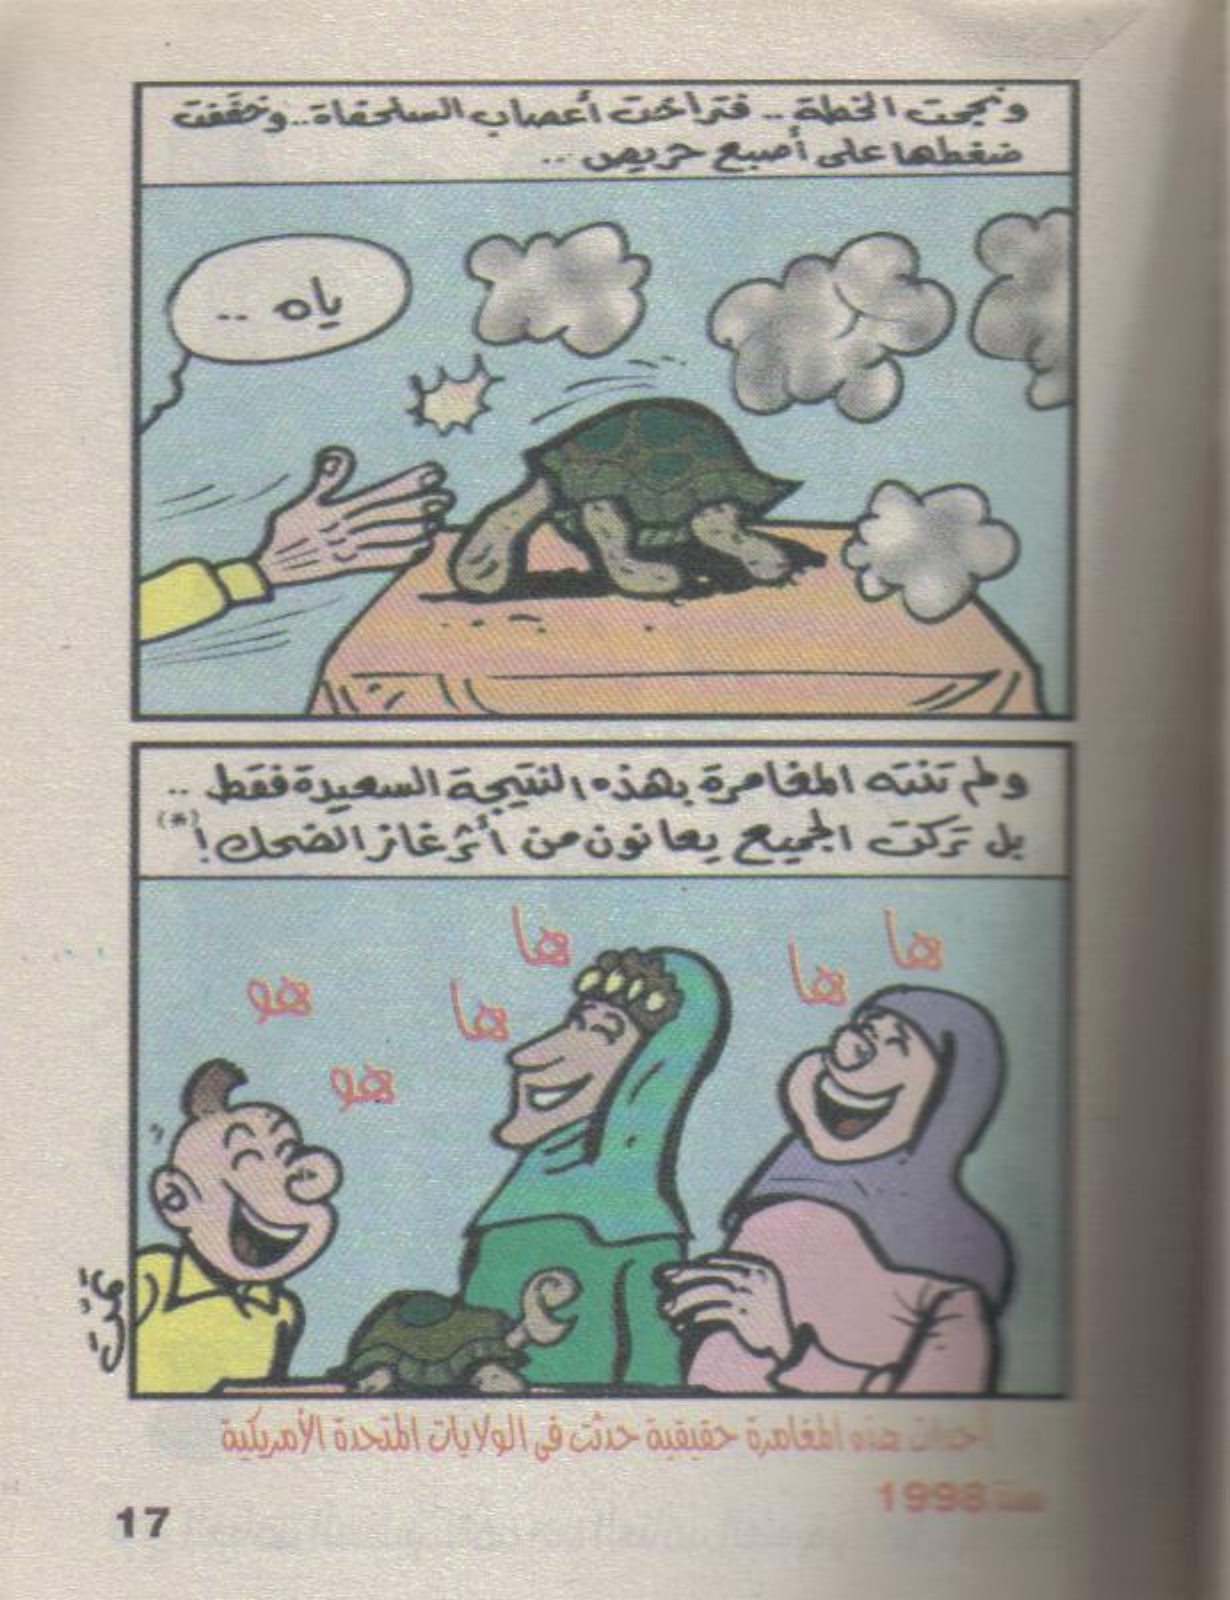 ونجحت الخطة .. فتراخت أعصاب السلحفاة .. وخففت
ضغطها على أصبع حريص ..
ياه ..
ولم تنته المغامرة بهذه النتيجة السعيدة فقط ..
بل تركت الجميع يعانون من أثر غاز الضحك ! (*)
ها
ها
ها
ها
هو
هو
أحداث هذه المغامرة حقيقية حدثت في الولايات المتحدة الأمريكية
سنة 1998
17